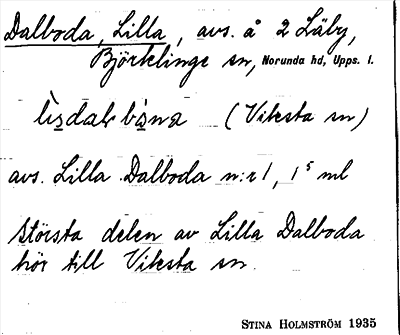 Dalboda, Lilla, avs. å 2 Läby,
Björklinge sn, Norunda hd, Upps. l.
(Viksta sn)
avs. Lilla Dalboda n:r 1, 1⁵ ml
Största delen av Lilla Dalboda
hör till Viksta sn.
STINA HOLMSTRÖM 1935